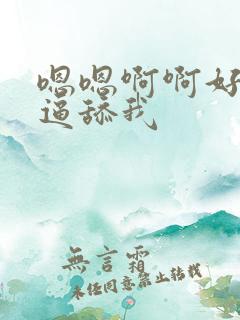 嗯嗯啊啊好
逼舔我
無言霜
未经同意禁止转载